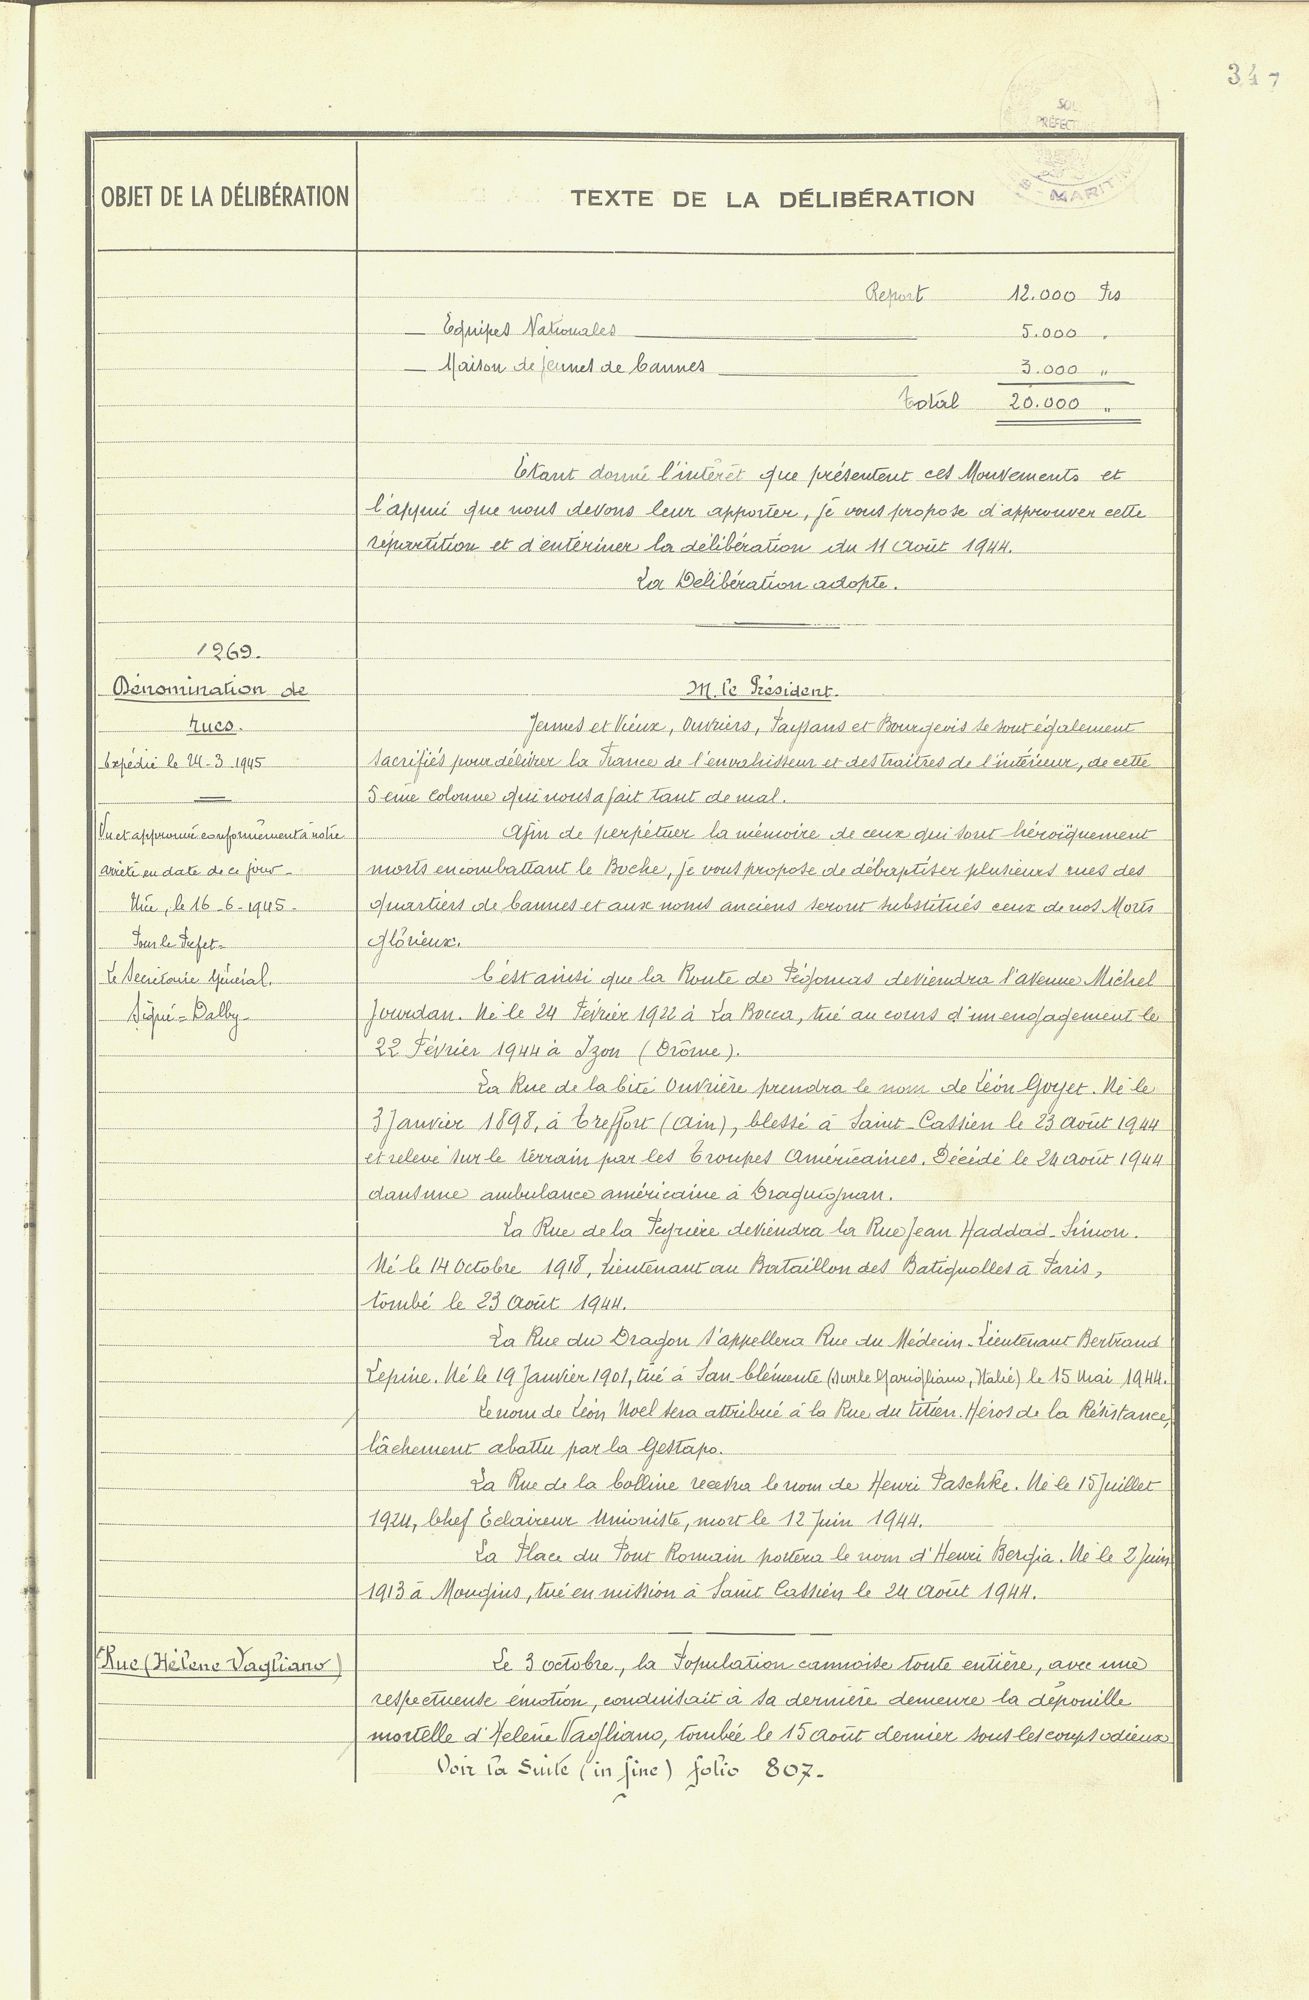 347
SOUS
PRÉFECTURE
MARITIMES
OBJET DE LA DÉLIBÉRATION
TEXTE DE LA DÉLIBÉRATION
Report 12.000 Frs
— Equipes Nationales 5.000 "
— Maison de jeunes de Cannes 3.000 "
Total 20.000 "
Etant donné l'intérêt que présentent ces Mouvements et
l'appui que nous devons leur apporter, je vous propose d'approuver cette
répartition et d'entériner la délibération du 11 Août 1944.
La Délibération adopte.
1269.
Dénomination de
rues.
Expédié le 24-3-1945
Vu et approuvé conformément à notre
arrêté en date de ce jour-
Nice, le 16-6-1945-
Pour le Préfet-
Le Secrétaire Général.
Signé = Dalby-
M. le Président.
Jeunes et Vieux, Ouvriers, Paysans et Bourgeois se sont également
sacrifiés pour délivrer la France de l'envahisseur et des traîtres de l'intérieur, de cette
5ème Colonne qui nous a fait tant de mal.
Afin de perpétuer la mémoire de ceux qui sont héroïquement
morts en combattant le Boche, je vous propose de débaptiser plusieurs rues des
quartiers de Cannes et aux noms anciens seront substitués ceux de nos Morts
glorieux.
C'est ainsi que la Route de Pégomas deviendra l'avenue Michel
Jourdan. Né le 24 Février 1922 à La Bocca, tué au cours d'un engagement le
22 Février 1944 à Izon (Drôme).
La Rue de la Cité Ouvrière prendra le nom de Léon Goyet. Né le
3 Janvier 1898, à Treffort (Ain), blessé à Saint-Cassien le 23 Août 1944
et relevé sur le terrain par les Troupes Américaines. Décédé le 24 Août 1944
dans une ambulance américaine à Draguignan.
La Rue de la Peyrière deviendra la Rue Jean Haddad-Simon.
Né le 14 Octobre 1918, Lieutenant au Bataillon des Batignolles à Paris,
tombé le 23 Août 1944.
La Rue du Dragon s'appellera Rue du Médecin-Lieutenant Bertrand
Lépine. Né le 19 Janvier 1901, tué à San-Clémente (sur le Garigliano, Italie) le 15 Mai 1944.
Le nom de Léon Noel sera attribué à la Rue du Titien. Héros de la Résistance,
lâchement abattu par la Gestapo.
La Rue de la Colline recevra le nom de Henri Paschke. Né le 15 Juillet
1924, Chef Eclaireur Unioniste, mort le 12 Juin 1944.
La Place du Pont Romain portera le nom d'Henri Bergia. Né le 2 Juin
1913 à Mougins, tué en mission à Saint Cassien le 24 Août 1944.
Rue (Hélène Vagliano)
Le 3 octobre, la Population cannoise toute entière, avec une
respectueuse émotion, conduisait à sa dernière demeure la dépouille
mortelle d'Hélène Vagliano, tombée le 15 Août dernier sous les coups odieux
Voir la suite (in fine) folio 807-